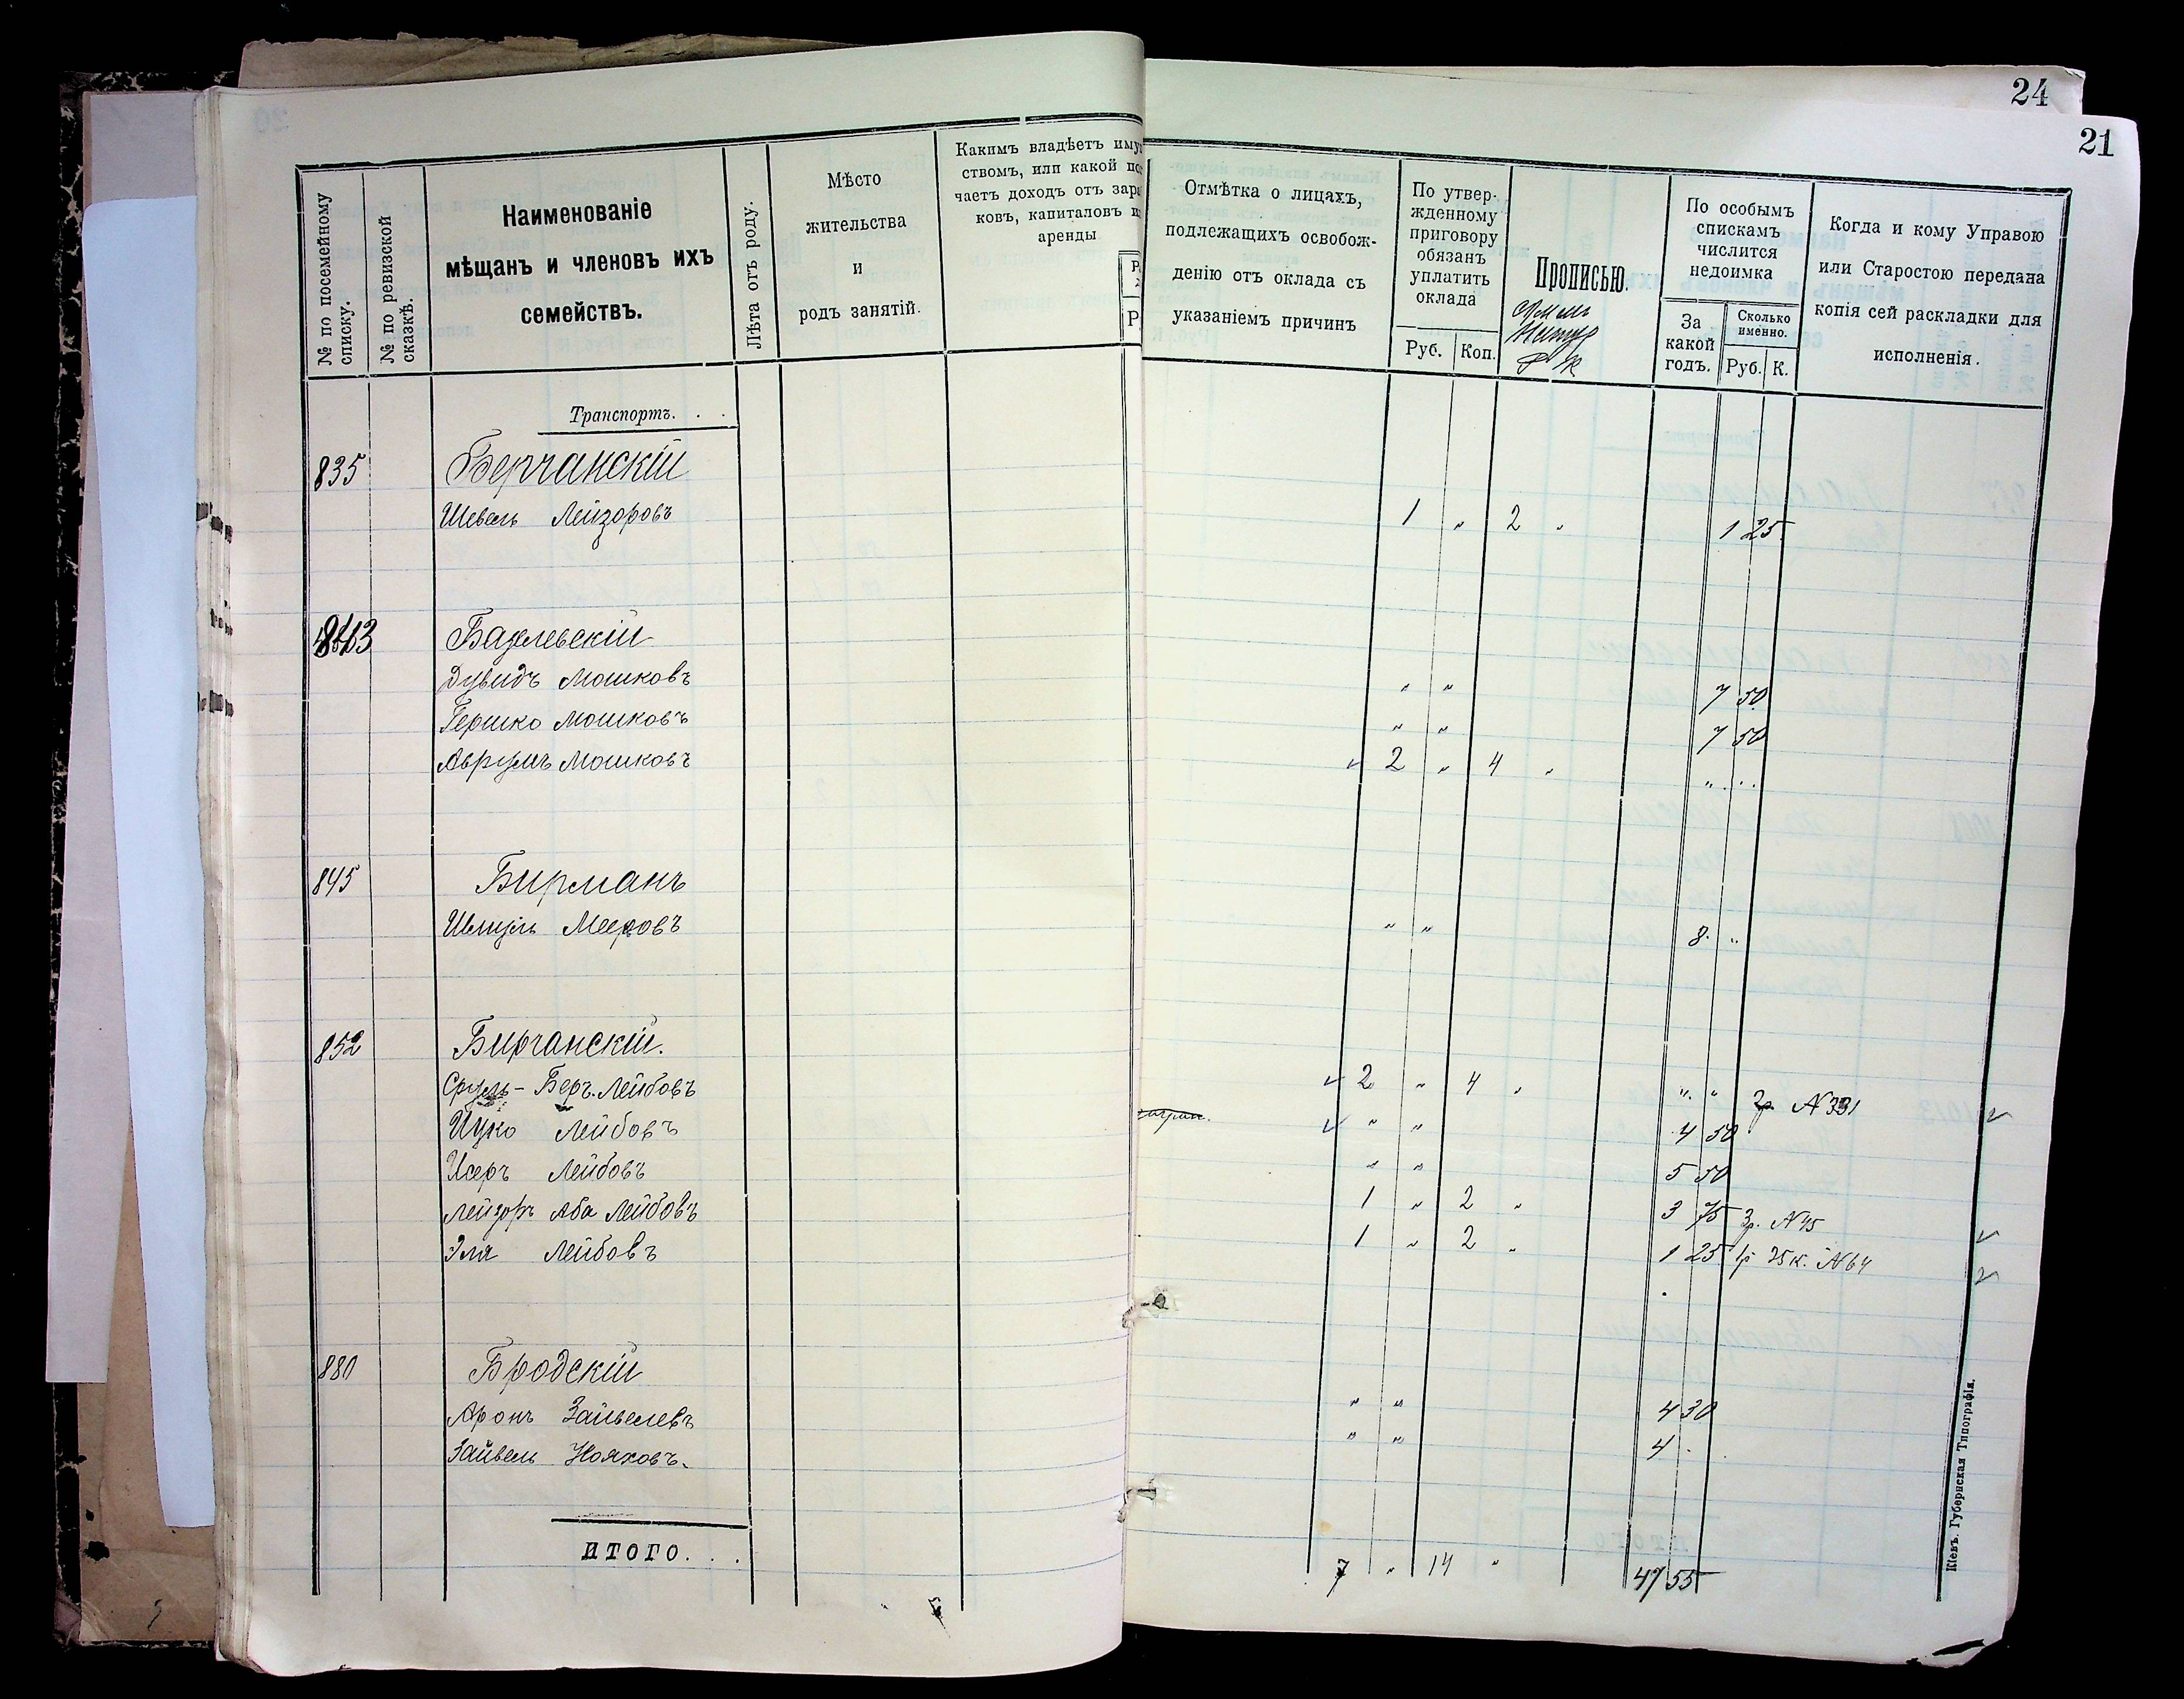 24
21
№ по посемейному списку.
№ по ревизской сказкѣ.
Наименованіе
мѣщанъ и членовъ ихъ
семействъ.
Лѣта отъ роду.
Мѣсто
жительства
и
родъ занятій.
Какимъ владѣетъ иму
ствомъ, или какой по
чаетъ доходъ отъ зара
ковъ, капиталовъ и
аренды
Р
Отмѣтка о лицахъ,
подлежащихъ освобож-
денію отъ оклада съ
указаніемъ причинъ
По утвер-
жденному
приговору
обязанъ
уплатить
оклада
Руб. Коп.
Прописью.
По особымъ
спискамъ
числится
недоимка
За
какой
годъ.
Сколько
именно.
Руб. К.
Когда и кому Управою
или Старостою передана
копія сей раскладки для
исполненія.
Транспортъ. . .
835 Берчанскій
Шевель Лейзоровъ 1 " 2 " 1 25
843 Базелевскій
Дувидъ Мошковъ " " 7 50
Гершко Мошковъ " " 7 50
Аврумъ Мошковъ ✓ 2 " 4 " " ..
845 Бирманъ
Шмуль Мееровъ " " 8 "
852 Бирчанскій.
Сруль-Беръ Лейбовъ ✓ 2 " 4 " " " 2р. №331 ✓
Ицко Лейбовъ ✓ " " 4 50
Исеръ Лейбовъ " " 5 50
Лейзоръ Аба Лейбовъ 1 " 2 " 3 75 3р. №45 ✓
Эля Лейбовъ 1 " 2 " 1 25 1р 25к. №64 ✓
880 Бродскій
Аронъ Зайвелевъ " " 4 30
Зайвель Нояховъ. " " 4 .
ИТОГО. . . 7 " 14 " 47 55
Кіевъ. Губернская Типографія.